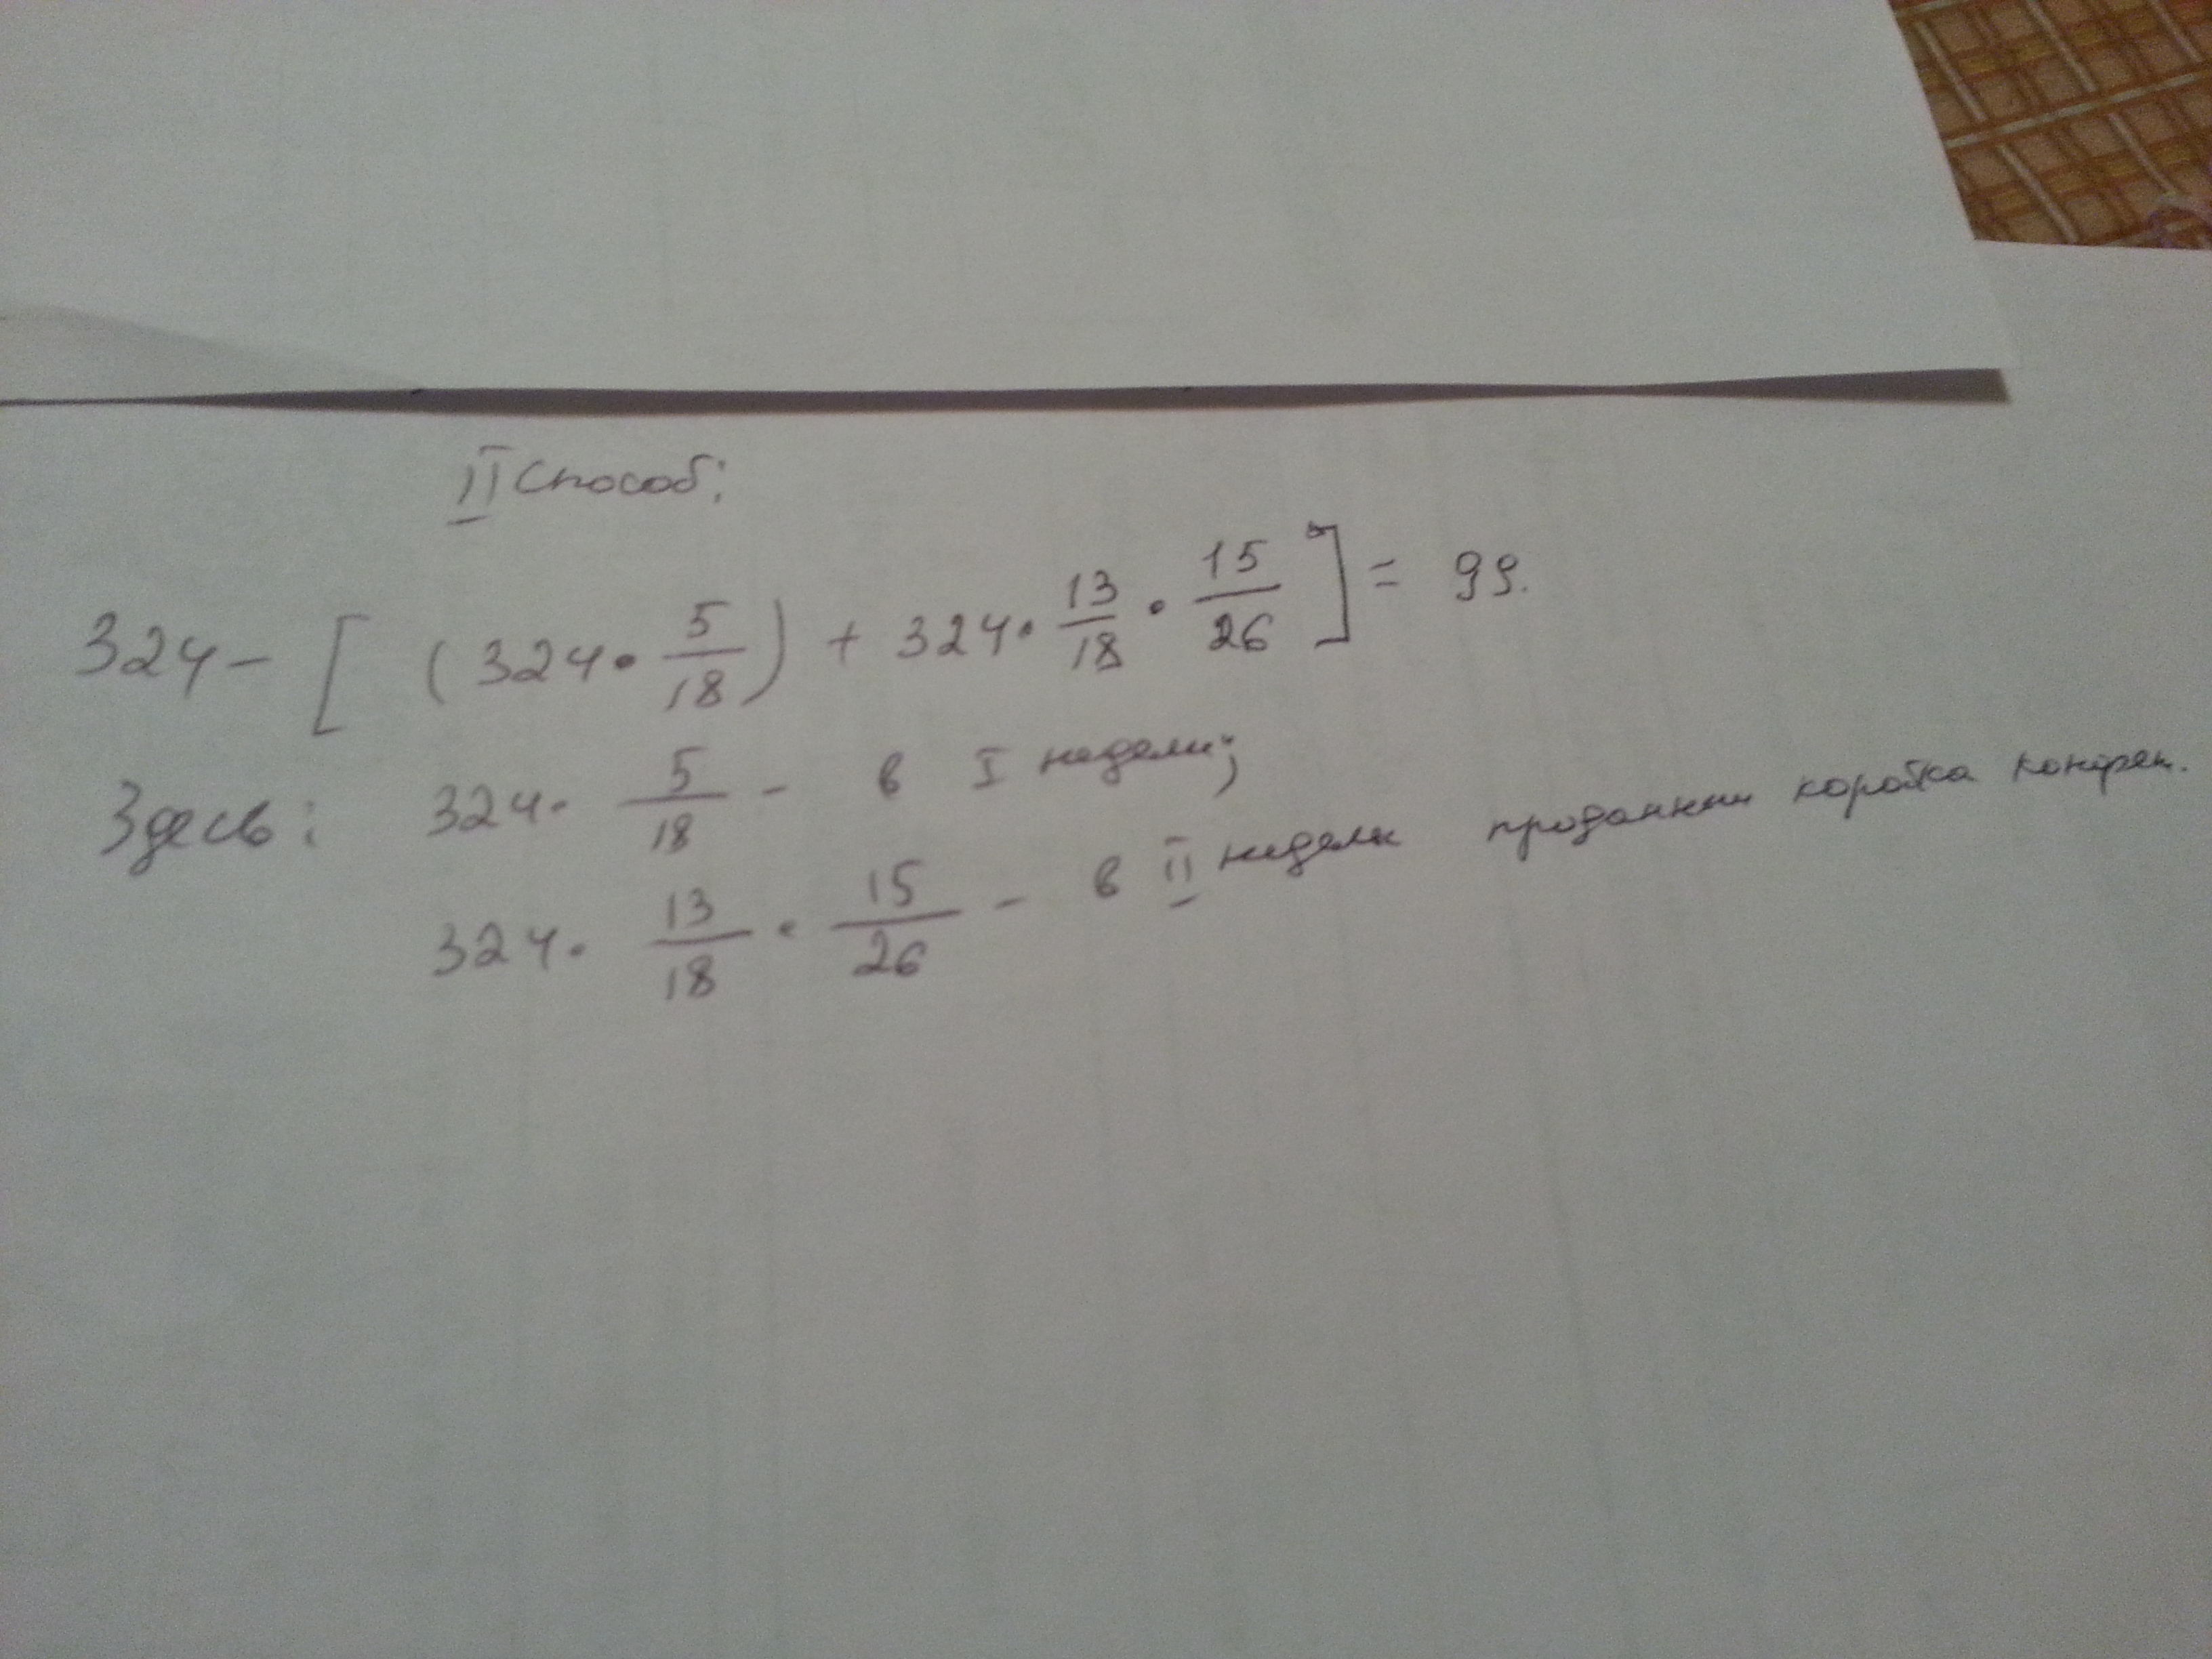 II способ:
324 - [ (324 · 5/18) + 324 · 13/18 · 15/26 ] = 99.
Здесь: 324 · 5/18 - в I недели;
324 · 13/18 · 15/26 - в II недели проданнии коробка конфет.